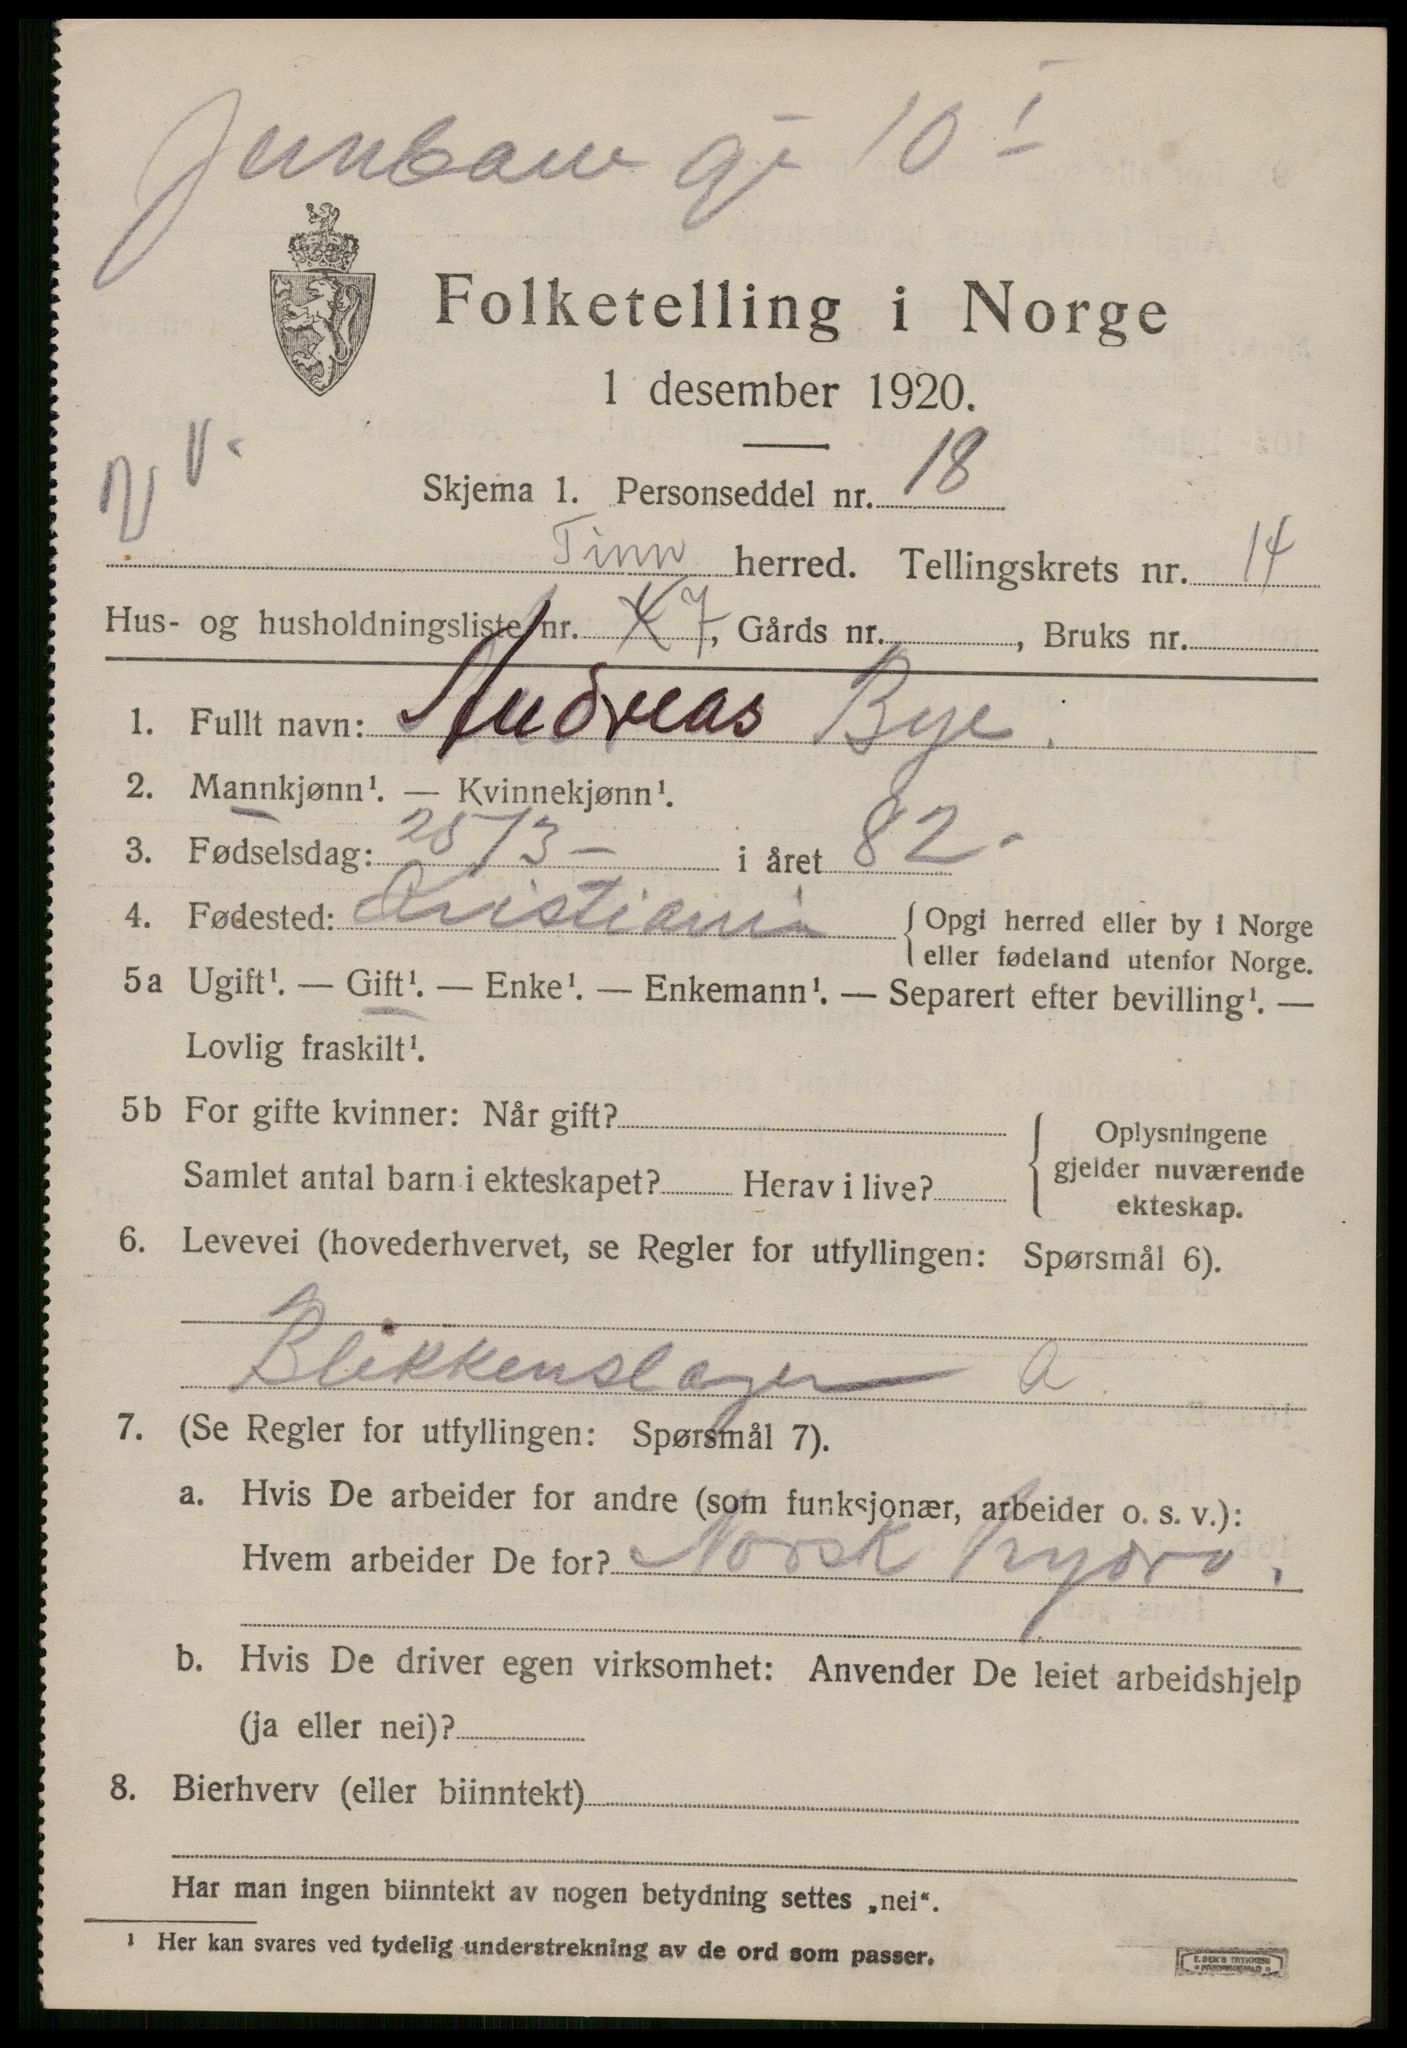 10 I
Folketelling i Norge
1 desember 1920.
Skjema 1. Personseddel nr. 18
Tinn herred. Tellingskrets nr. 14
Hus- og husholdningsliste nr. 7, Gårds nr. , Bruks nr.
1. Fullt navn: Andreas Bye.
2. Mannkjønn¹. — Kvinnekjønn¹.
3. Fødselsdag: 25/3 - i året 82-
4. Fødested: Kristiania { Opgi herred eller by i Norge
eller fødeland utenfor Norge.
5a Ugift¹. — Gift¹. — Enke¹. — Enkemann¹. — Separert efter bevilling¹. —
Lovlig fraskilt¹.
5b For gifte kvinner: Når gift?
Samlet antal barn i ekteskapet? Herav i live?
{ Oplysningene
gjelder nuværende
ekteskap.
6. Levevei (hovederhvervet, se Regler for utfyllingen: Spørsmål 6).
Blikkenslager a
7. (Se Regler for utfyllingen: Spørsmål 7).
a. Hvis De arbeider for andre (som funksjonær, arbeider o. s. v.):
Hvem arbeider De for? Norsk hydro.
b. Hvis De driver egen virksomhet: Anvender De leiet arbeidshjelp
(ja eller nei)?
8. Bierhverv (eller biinntekt)
Har man ingen biinntekt av nogen betydning settes „nei“.
¹ Her kan svares ved tydelig understrekning av de ord som passer.